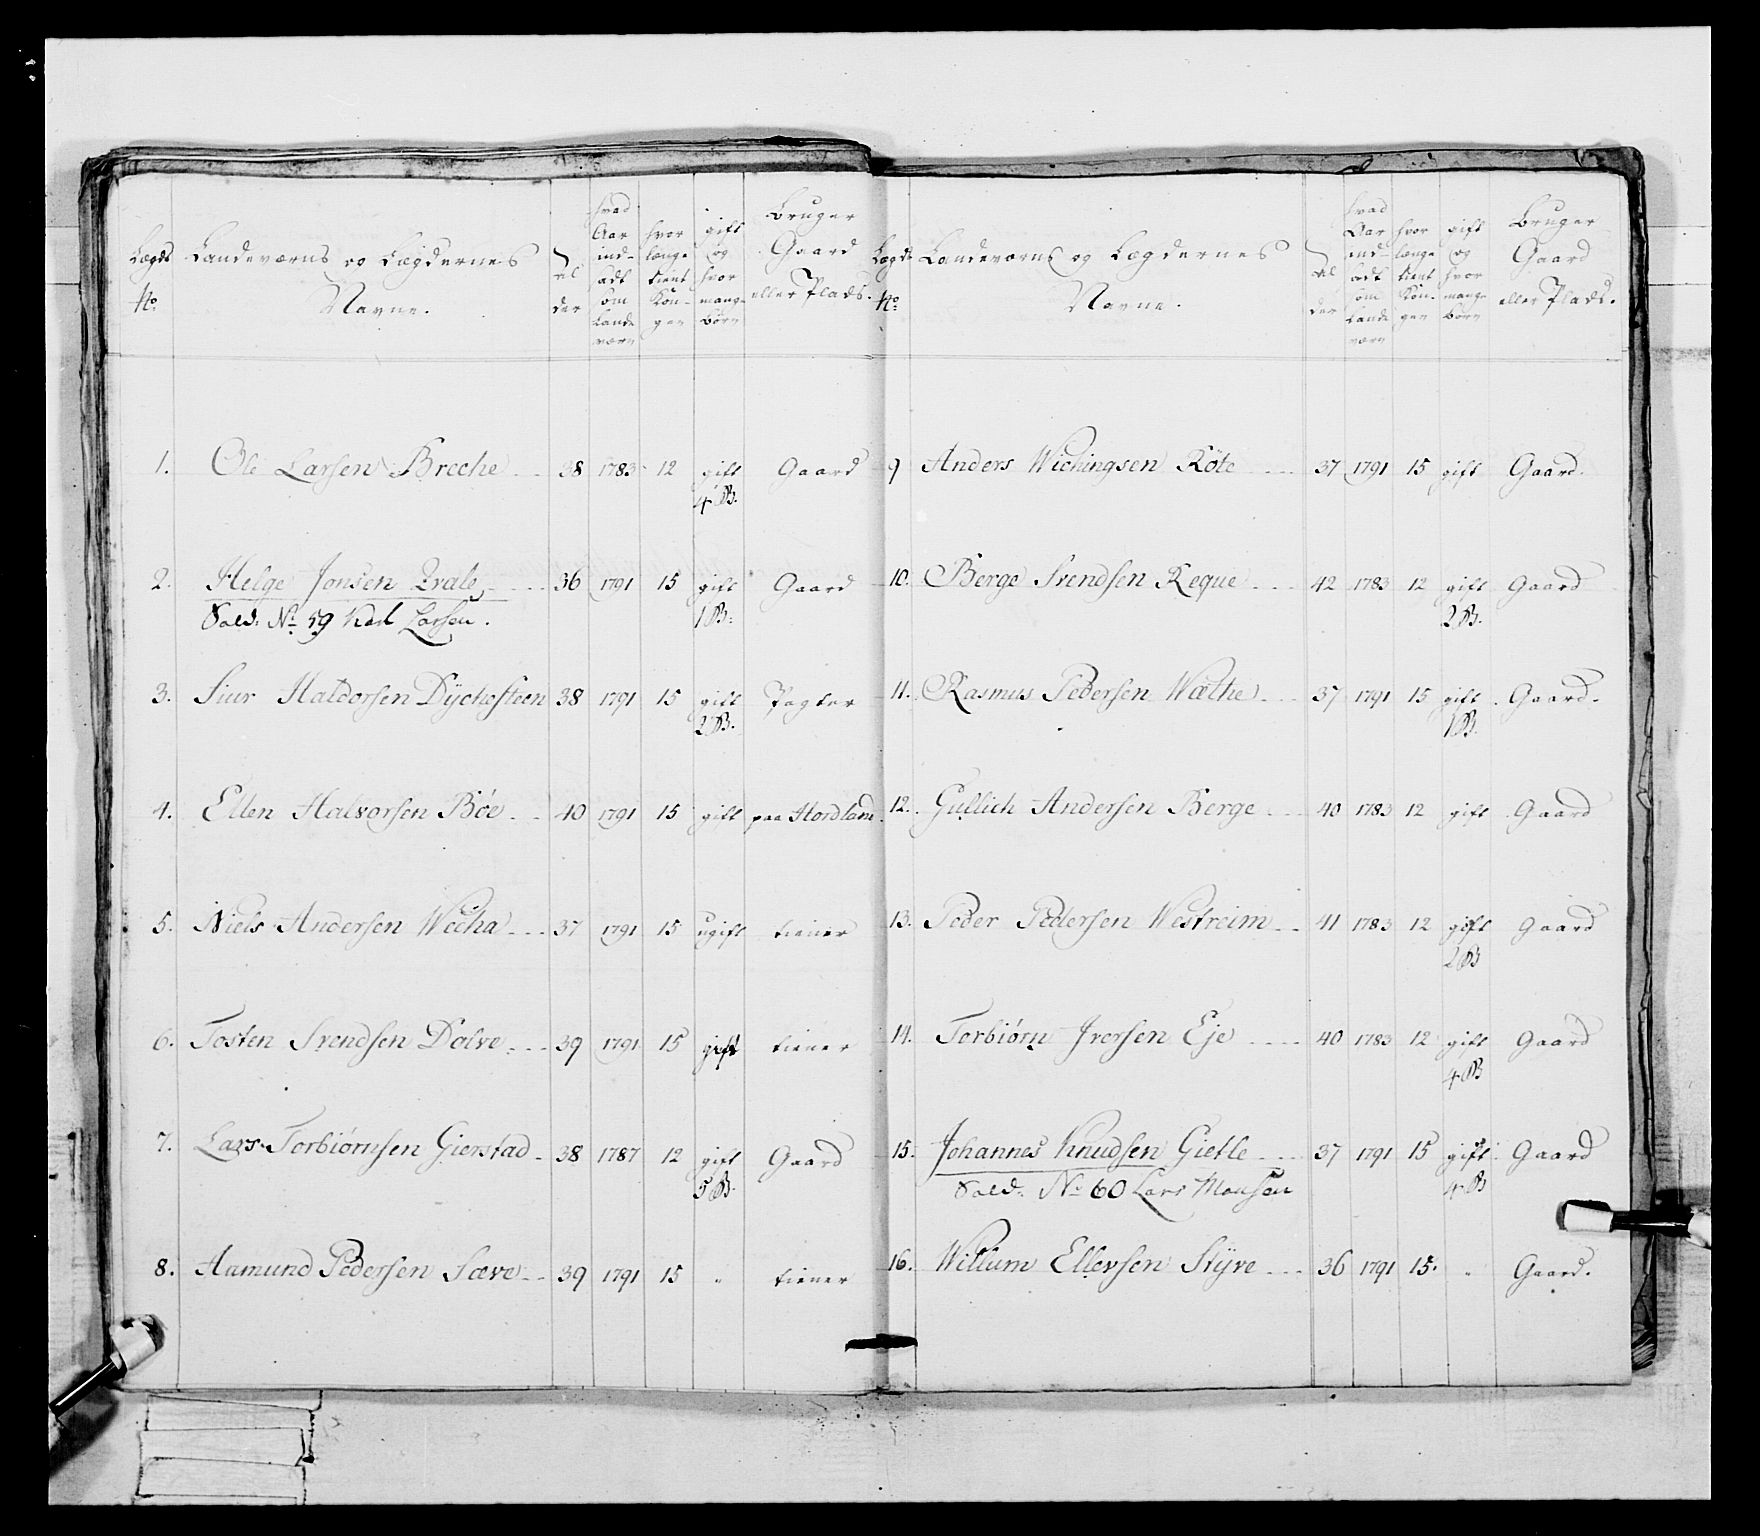 Lægds No.
Landeværns og Lægdernes Navne.
Alder
hvad Aar indsadt som Landeværn
hvor længe tient Kongen
gift og hvor mange børn
Bruger Gaard eller Plads.
1. Ole Larsen Breche 38 1783 12 gift Gaard
4 B.
2. Helge Jonsen Qvale 36 1791 15 gift Gaard
Sold: No 59 Larsen. 1 B:
3. Siur Haldorsen Dÿchesteen 38 1791 15 gift Pagter
2 B.
4. Ellen Halvorsen Böe 40 1791 15 gift paa Hordland
5. Niels Andersen Wecha 37 1791 15 ugift tiener
6. Tosten Svendsen Dolve 39 1791 15 gift tiener
7. Lars Torbiørnsen Gierstad 38 1787 12 gift Gaard
5 B.
8. Aamund Pedersen Sæve 39 1791 15 " tiener
Lægds No.
Landeværns og Lægdernes Navne.
Alder
hvad Aar indsadt som Landeværn
hvor længe tient Kongen
gift og hvor mange børn
Bruger Gaard eller Plads.
9 Anders Wichingsen Röte 37 1791 15 gift Gaard.
10. Berge Svendsen Reque 42 1783 12 gift Gaard
2 B.
11. Rasmus Pedersen Wæthe 37 1791 15 gift Gaard.
1 B.
12. Gullich Andersen Berge 40 1783 12 gift Gaard
13. Peder Pedersen Westreim 41 1783 12 gift Gaard
2 B
14. Torbiørn Iversen Eje 40 1783 12 gift Gaard
4 B
15. Johannes Knudsen Gietle 37 1791 15 gift Gaard
Sold. No 60 Lars Monsen 4 B
16. Willum Ellevsen Stÿve 36 1791 15. " Gaard.